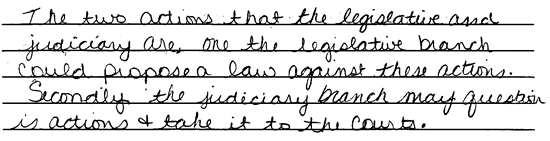 The two actions that the legislative and
judiciary are, one the legislative branch
could propose a law against these actions.
Secondly the judiciary branch may question
is actions & take it to the courts.